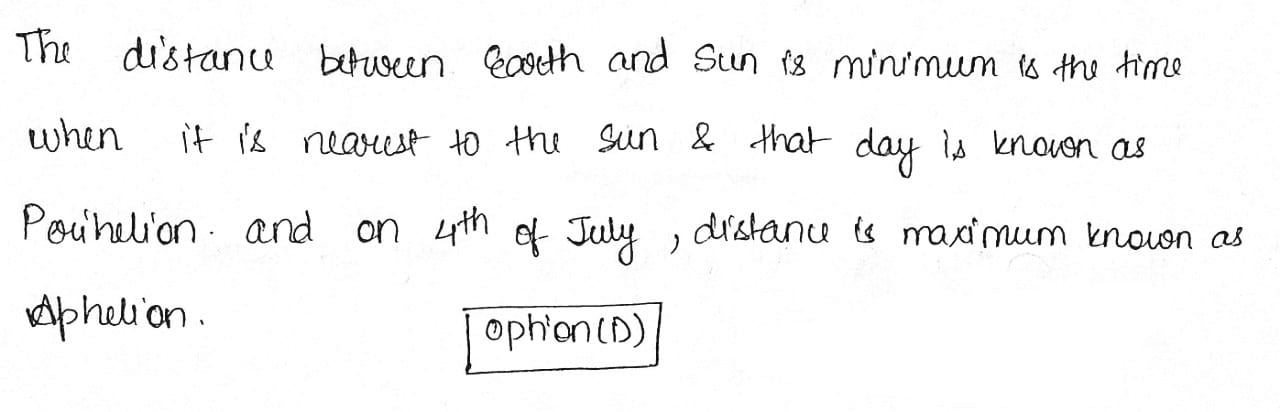 The distance between Earth and Sun is minimum is the time
when it is nearest to the sun & that day is known as
Perihelion. and on 4th of July, distance is maximum known as
Aphelion.
Option(D)